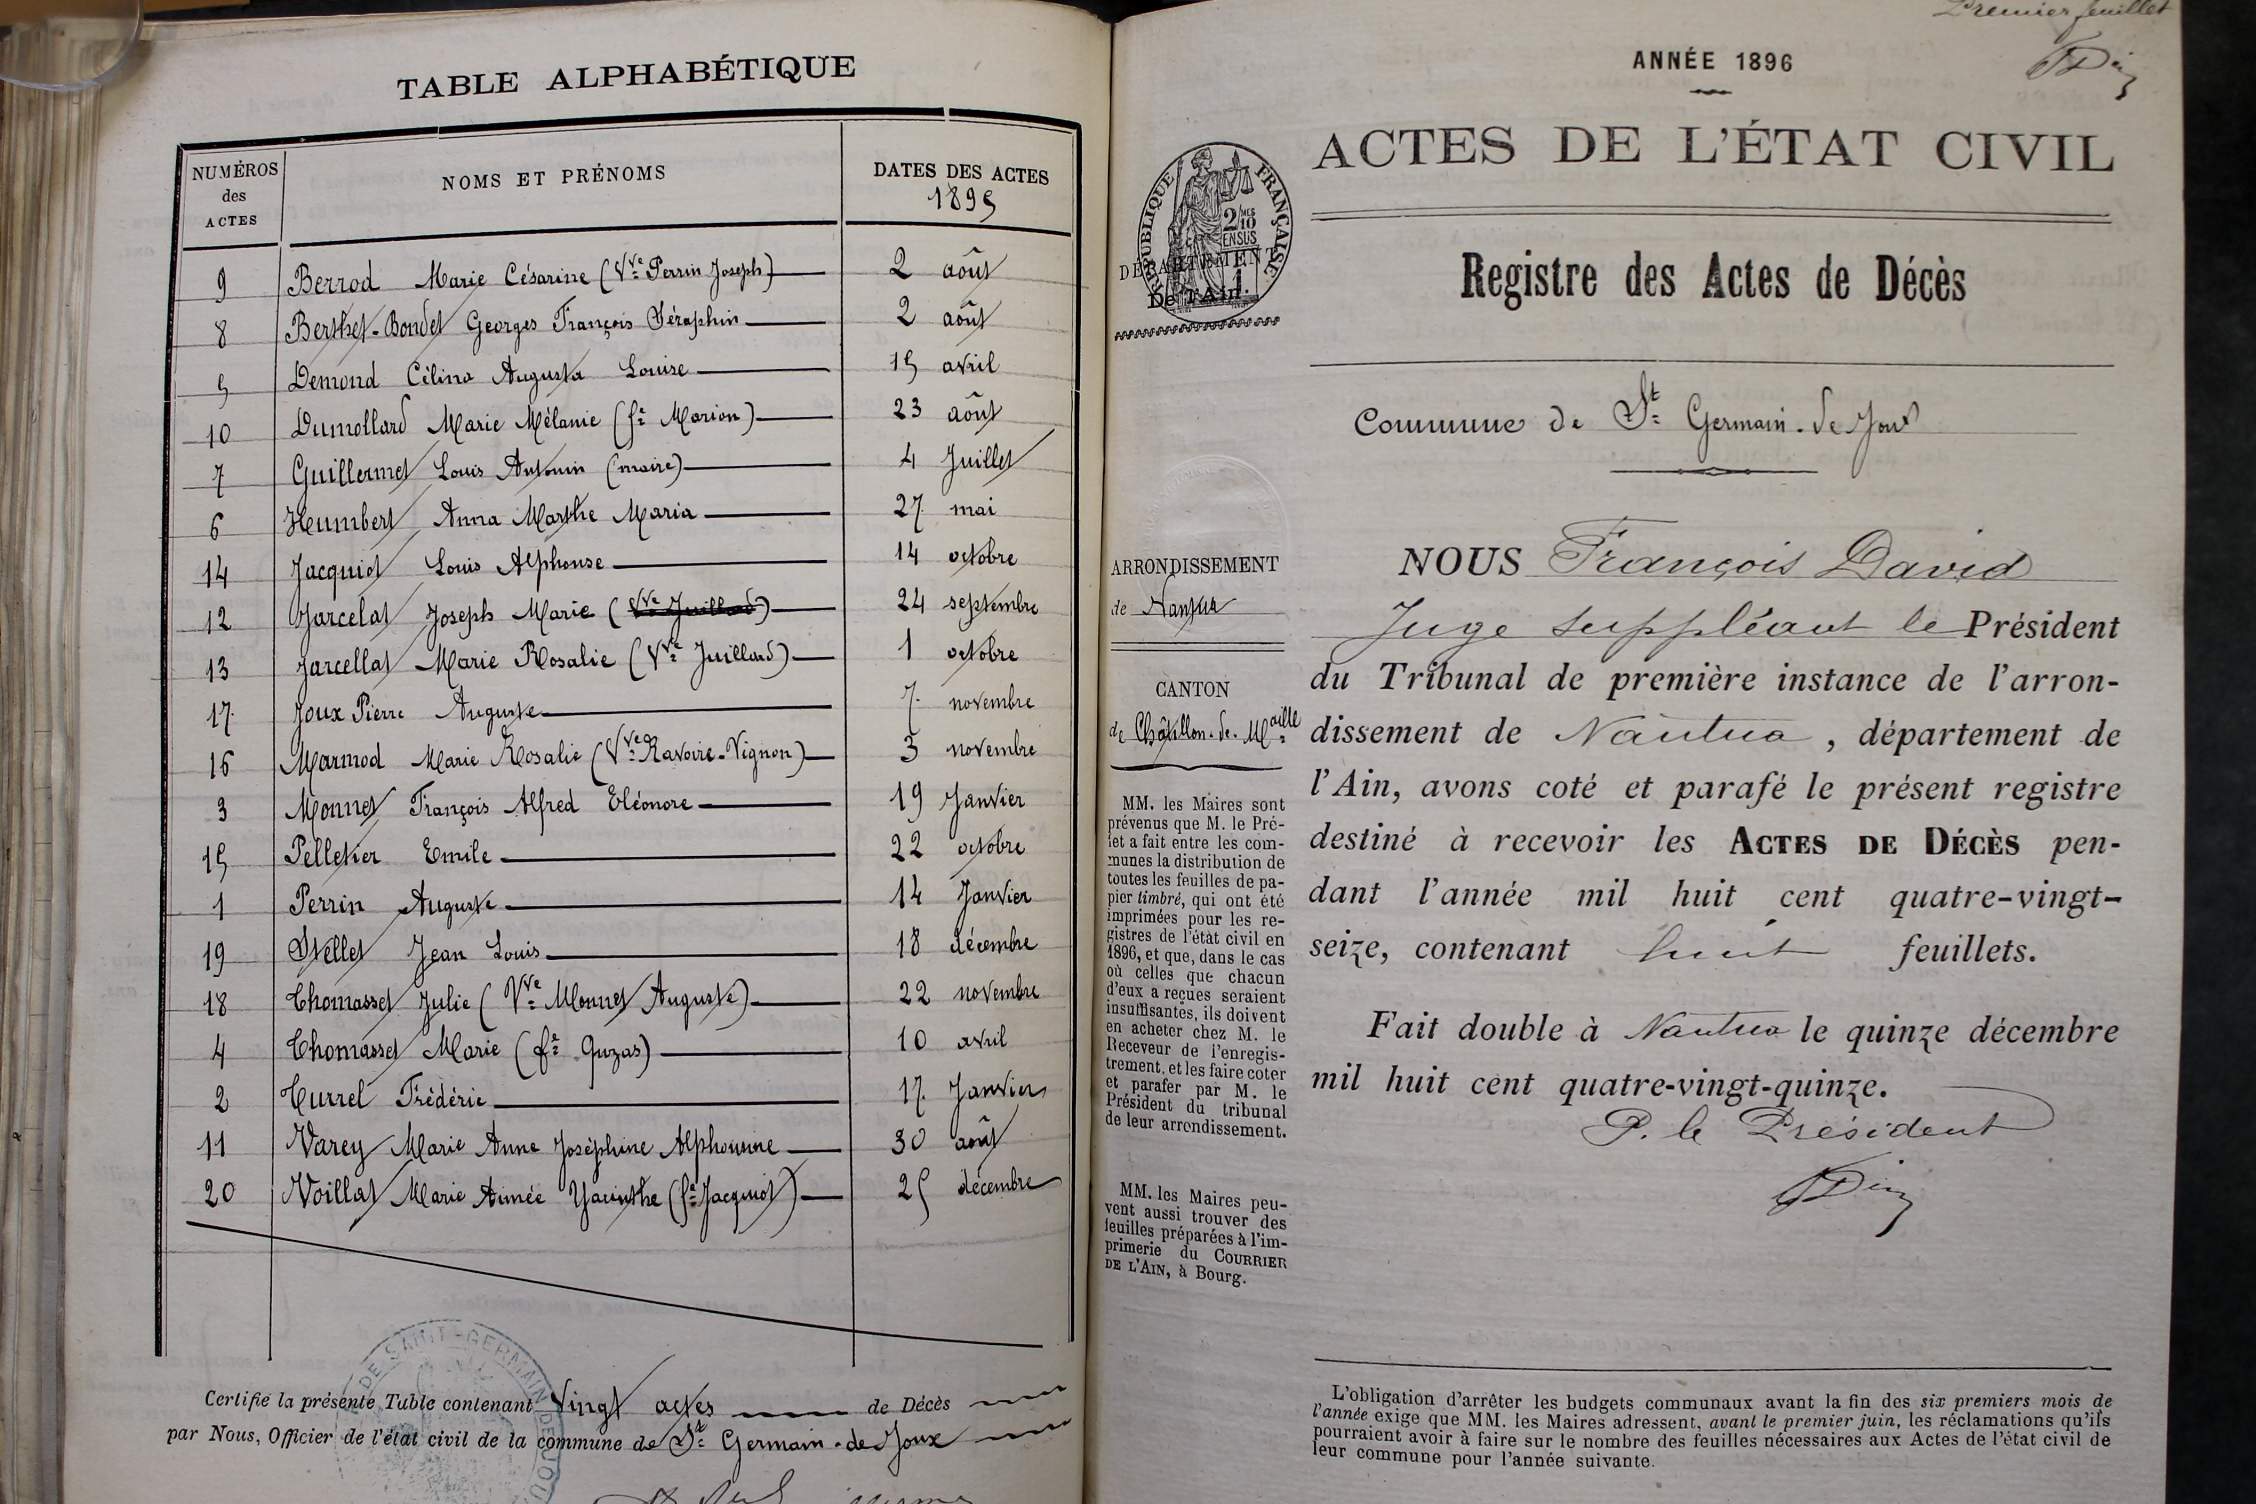 TABLE ALPHABÉTIQUE
NUMÉROS des ACTES
NOMS ET PRÉNOMS
DATES DES ACTES
1895
9 Berrod Marie Césarine (Vve Perrin Joseph) 2 août
8 Berthet-Bondet Georges François Séraphin 2 août
5 Demond Célina Augusta Louise 15 avril
10 Dumollard Marie Mélanie (fe Marion) 23 août
7 Guillermet Louis Antonin (maire) 4 Juillet
6 Humbert Anna Marthe Maria 27 mai
14 Jacquiot Louis Alphonse 14 octobre
12 Jarcelat Joseph Marie (Vve Juillard) 24 septembre
13 Jarcellat Marie Rosalie (Vve Juillard) 1 octobre
17 Joux Pierre Auguste 7 novembre
16 Marmod Marie Rosalie (Vve Ravoire-Vignon) 3 novembre
3 Monnet François Alfred Eléonore 19 Janvier
15 Pelletier Emile 22 octobre
1 Perrin Auguste 14 Janvier
19 Stellet Jean Louis 18 décembre
18 Thomasset Julie (Vve Monnet Auguste) 22 novembre
4 Thomasset Marie (fe Guzas) 10 avril
2 Turrel Frédéric 17 Janvier
11 Varey Marie Anne Joséphine Alphonsine 30 août
20 Voillat Marie Aimée Yacinthe (fe Jacquiot) 25 décembre
Certifié la présente Table contenant Vingt actes de Décès
par Nous, Officier de l'état civil de la commune de St Germain-de-Joux
DE SAINT-GERMAIN-DE-JOUX
Premier feuillet
ANNÉE 1896
ACTES DE L'ÉTAT CIVIL
RÉPUBLIQUE FRANÇAISE
2/10 EN SUS
DÉPARTEMENT
De l'Ain.
Registre des Actes de Décès
Commune de St Germain-de-Joux
ARRONDISSEMENT
de Nantua
CANTON
de Châtillon-de-Maille
MM. les Maires sont
prévenus que M. le Pré-
fet a fait entre les com-
munes la distribution de
toutes les feuilles de pa-
pier timbré, qui ont été
imprimées pour les re-
gistres de l'état civil en
1896, et que, dans le cas
où celles que chacun
d'eux a reçues seraient
insuffisantes, ils doivent
en acheter chez M. le
Receveur de l'enregis-
trement, et les faire coter
et parafer par M. le
Président du tribunal
de leur arrondissement.
MM. les Maires peu-
vent aussi trouver des
feuilles préparées à l'im-
primerie du COURRIER
DE L'AIN, à Bourg.
NOUS François David
Juge suppléant le Président
du Tribunal de première instance de l'arron-
dissement de Nantua, département de
l'Ain, avons coté et parafé le présent registre
destiné à recevoir les ACTES DE DÉCÈS pen-
dant l'année mil huit cent quatre-vingt-
seize, contenant huit feuillets.
Fait double à Nantua le quinze décembre
mil huit cent quatre-vingt-quinze.
P. le Président
L'obligation d'arrêter les budgets communaux avant la fin des six premiers mois de
l'année exige que MM. les Maires adressent, avant le premier juin, les réclamations qu'ils
pourraient avoir à faire sur le nombre des feuilles nécessaires aux Actes de l'état civil de
leur commune pour l'année suivante.